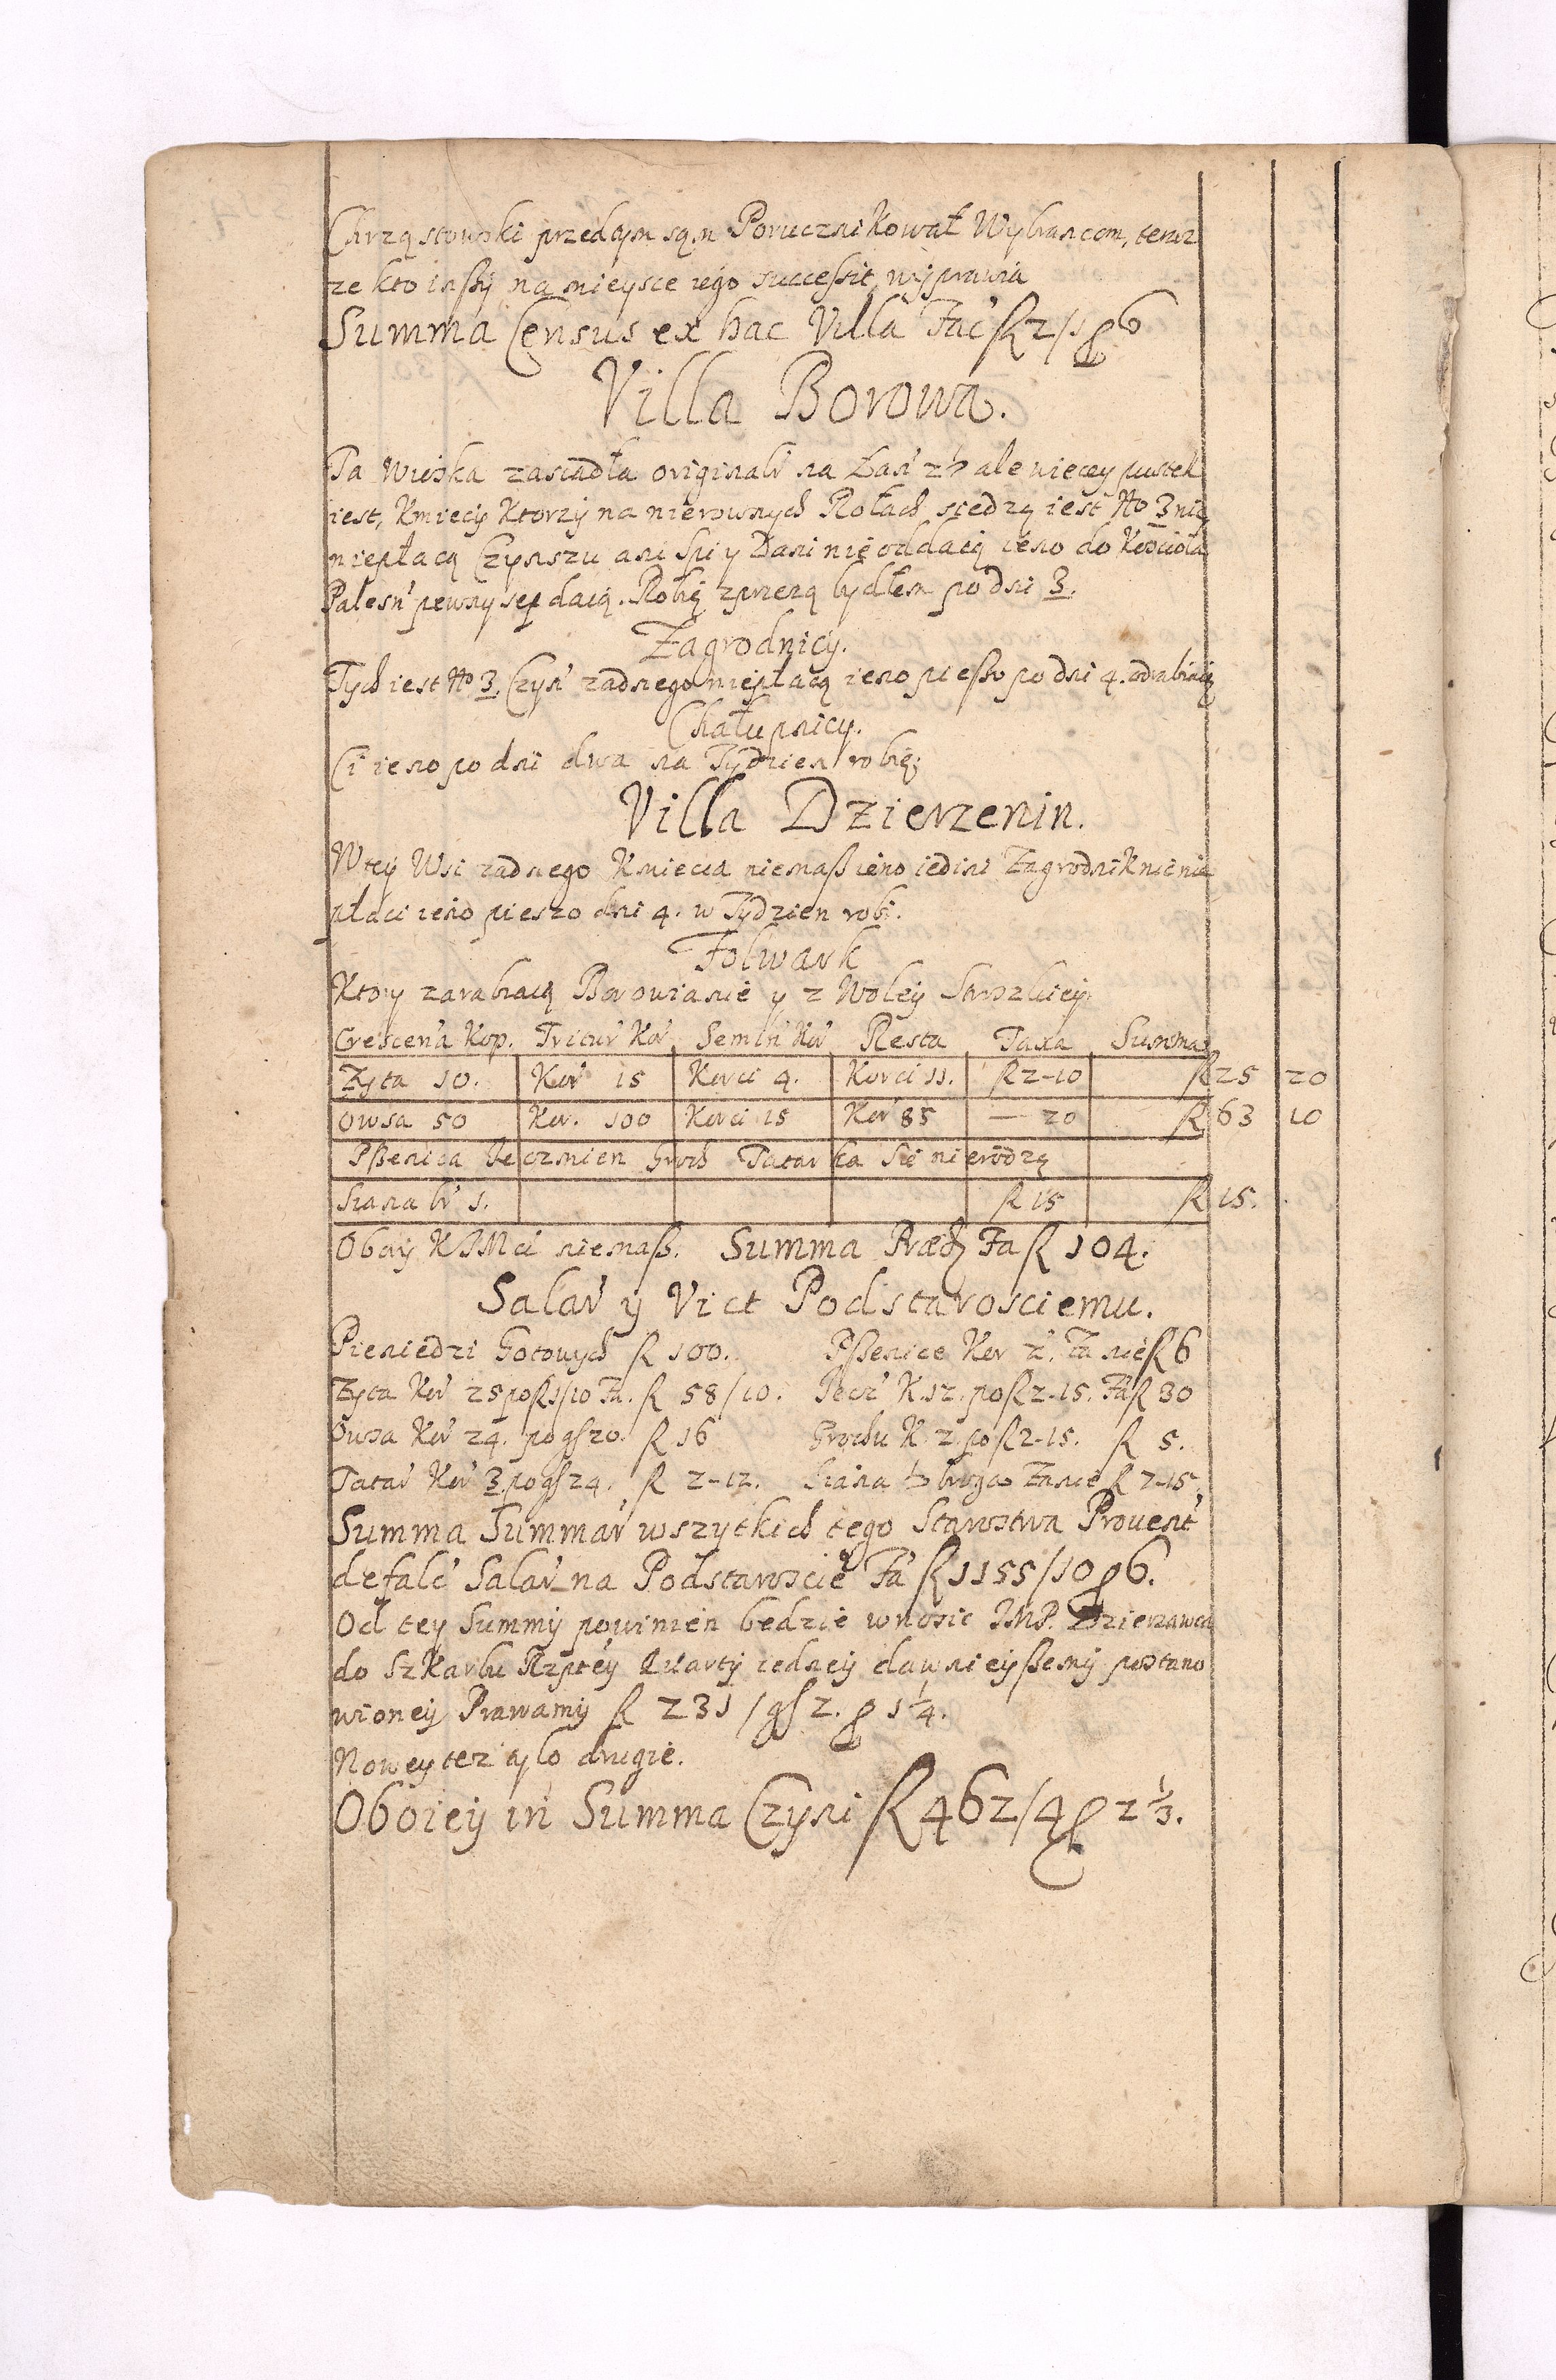 Chrząstowski przedtym sąm Porucznikował Wybrancom, teraz
ze kto inßy na mieysce iego successit wyprawia
Summa Census ex hac Villa Fac ſl 2/1 ꝑ 6
Villa Borowa.
Ta Wioska zasiadła originali na Łan 2½ ale wiecey pustek
iest, Kmiecy Ktorzy na nierownych Rolach siedzą iest No 3 nic
niepłacą Czynszu ani Spi y Dani nie oddaią ieno do Kościoła
Palesn pewny sep daią. Robią zprzezą bydłem po dni 3.
Zagrodnicy.
Tych iest No 3. Czyn zadnego niepłacą ieno pießo po dni 4. odrabiaią
Chałupnicy.
Ci ieno po dni dwa na Tydzien robią;
Villa Dzierzenin.
W tey Wsi zadnego Kmiecia niemaß ieno iedin Zagrodnik nic nie
płaci ieno pieszo dni 4. w Tydzien robi.
Folwark
Ktory zarabiaią Borowianie y z Woley
Crescen Kop. Tritur Kor Semin Kor Resta Taxa Summa
Zyta 10. Kor 15 Korci 4. Korci 11. ſl 2-10 ſl 25 20
Owsa 50 Kor. 100 Korci 15 Kor 85 — 20 ſl 63 10
Pßenica Jeczmien Groch Tatarka Sie nierodzą
Siana br 1. ſl 15 ſl 15.
Obory KJMci niemaß. Summa Præd Fa ſl 104.
Salar y Vict Podstarosciemu.
Pieniedzi Gotowych ſl 100. Pßenice Kor 2. Fa ſl 6
Zyta Kor 25 po ſl 2/10 Fa. ſl 58/10. Jecz K. 12. po ſl 2-15. Fa ſl 30
Owsa Kor 24. po gſ 20. ſl 16 Grochu K 2 po ſl 2-15. ſl 5.
Tatar Kor 3 po gſ 24. ſl 2-12. Siana ½ broga ſl 7-15
Summa Summar wszytkich tego Starostwa Prouent
defalc Salar na Podstaroscie Fa ſl 1155/10 ꝑ 6.
Od tey Summy powinien bedzie wnosic JMP. Dzierzawca
do Szkarbu Rzptey Quarty iedney dawnieyßemy postano
wioney Prawamy ſl 231/gſ 2. ꝑ 1¼.
Nowey tez tylo drugie.
Oboiey in Summa Czyni ſl 462/4 ꝑ 2⅓.